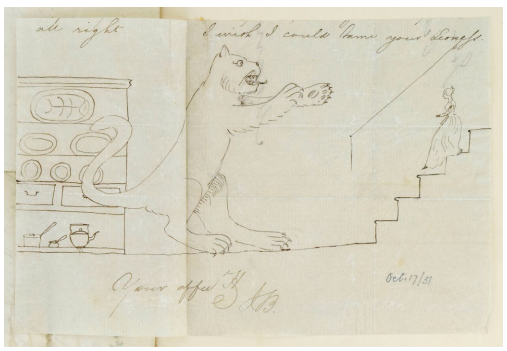 all right I wish I could tame your Lioness.
Your affec
Oct. 17/51